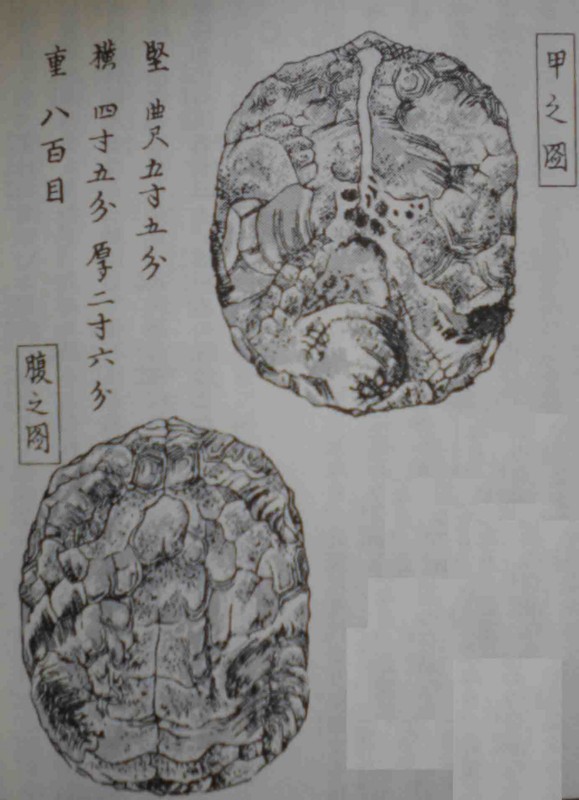 甲之圖
堅 曲尺五寸五分
横 四寸五分 厚二寸六分
重 八百目
腹之圖